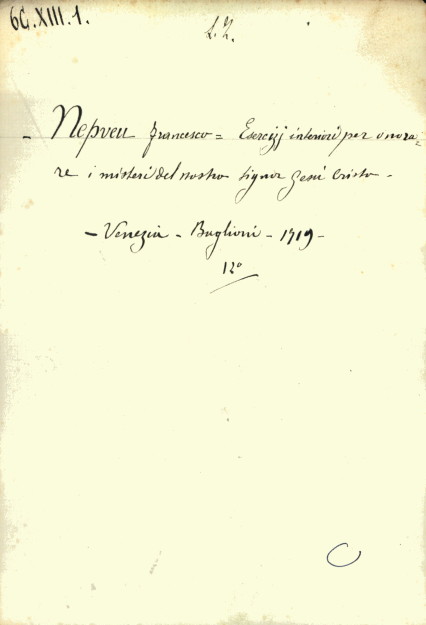 6G.XIII.1.
L.2.
- Nepveu Francesco = Esercizj interiori per onora=
re i misteri del nostro Signor Gesù Cristo -
- Venezia - Baglioni - 1719 -
12°
C